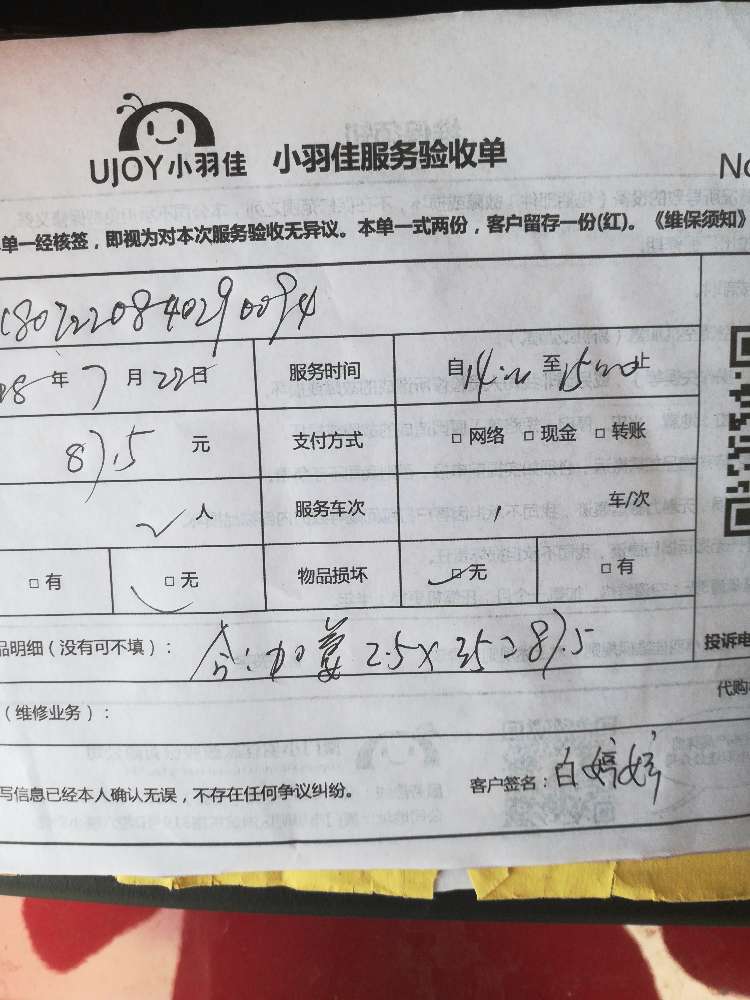 UJOY小羽佳 小羽佳服务验收单
No
单一经核签，即视为对本次服务验收无异议。本单一式两份，客户留存一份(红)。《维保须知》
年7月22日 服务时间 自14:00至15:00止
87.5 元 支付方式 □网络 □现金 □转账
人 服务车次 1 车/次
□有 □无 物品损坏 □无 □有
品明细（没有可不填）： 2.5×35=87.5
投诉电
（维修业务）：
代购
写信息已经本人确认无误，不存在任何争议纠纷。 客户签名：白婷婷